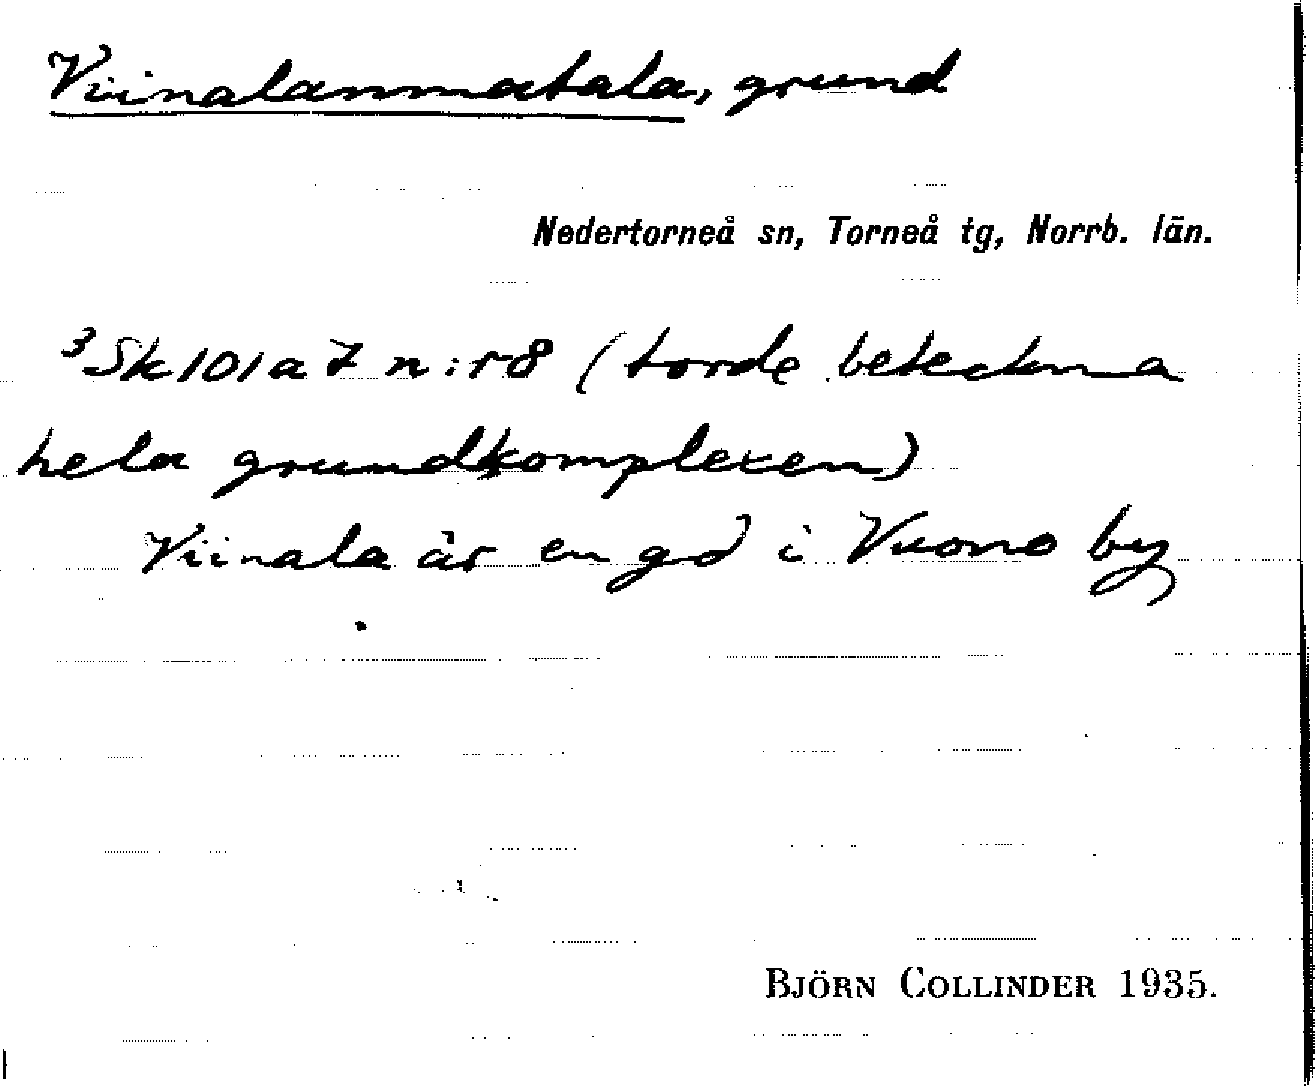 Viinalanmatala, grund
Nedertorneå sn, Torneå tg, Norrb. län.
³Sk101a7 n:r8 (torde beteckna
hela grundkomplexen)
Viinala är en gd i Vuono by
BJÖRN COLLINDER 1935.